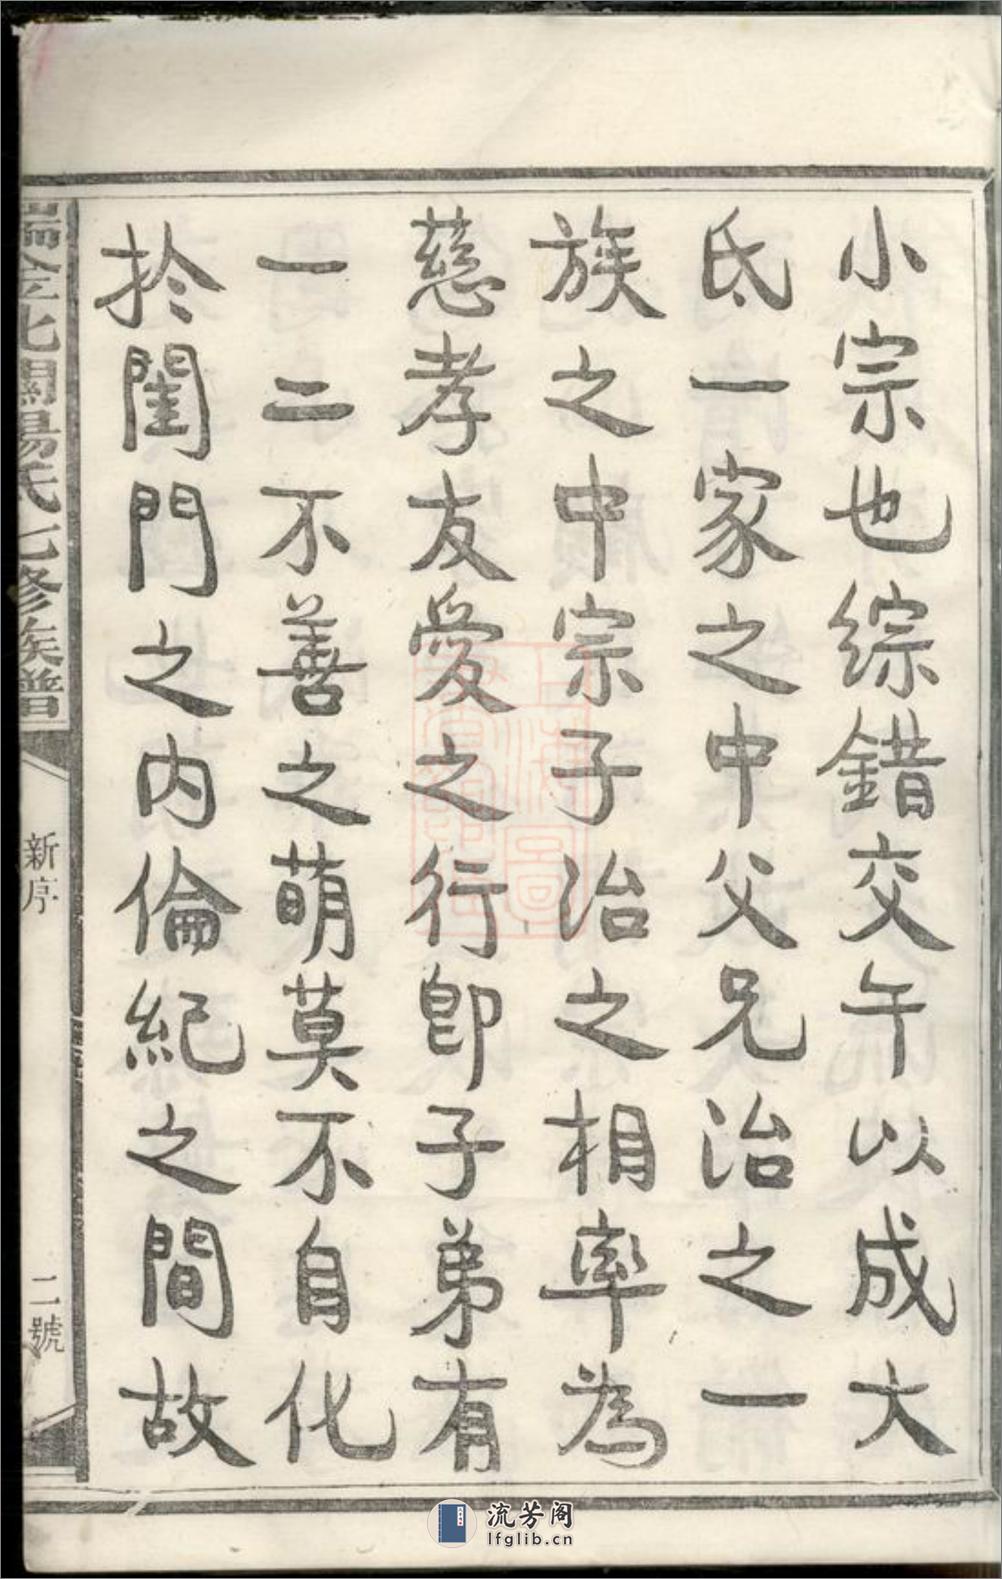 小宗也綜錯交午以成大
氏一家之中父兄治之一
族之中宗子治之相率為
慈孝友愛之行即子弟有
一二不善之萌莫不自化
於閨門之内倫紀之間故
瑞金北關楊氏七修族譜
新序
二號
流芳阁
lfglib.cn